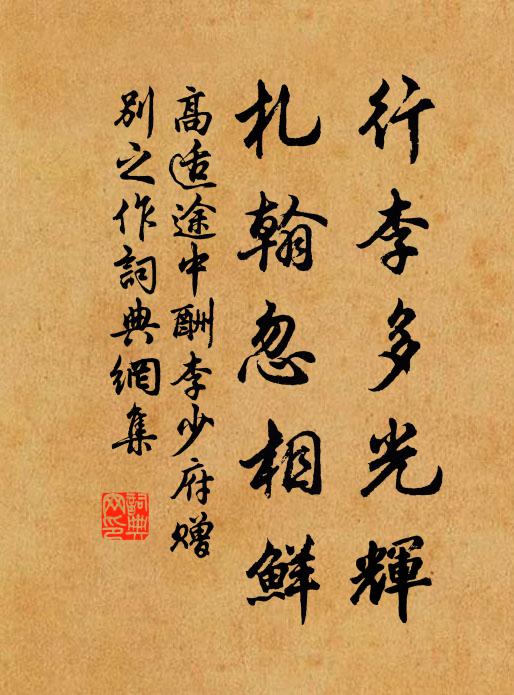 行李多光輝
札翰忽相鮮
高適途中酬李少府贈
別之作詞典網集
詞典網印